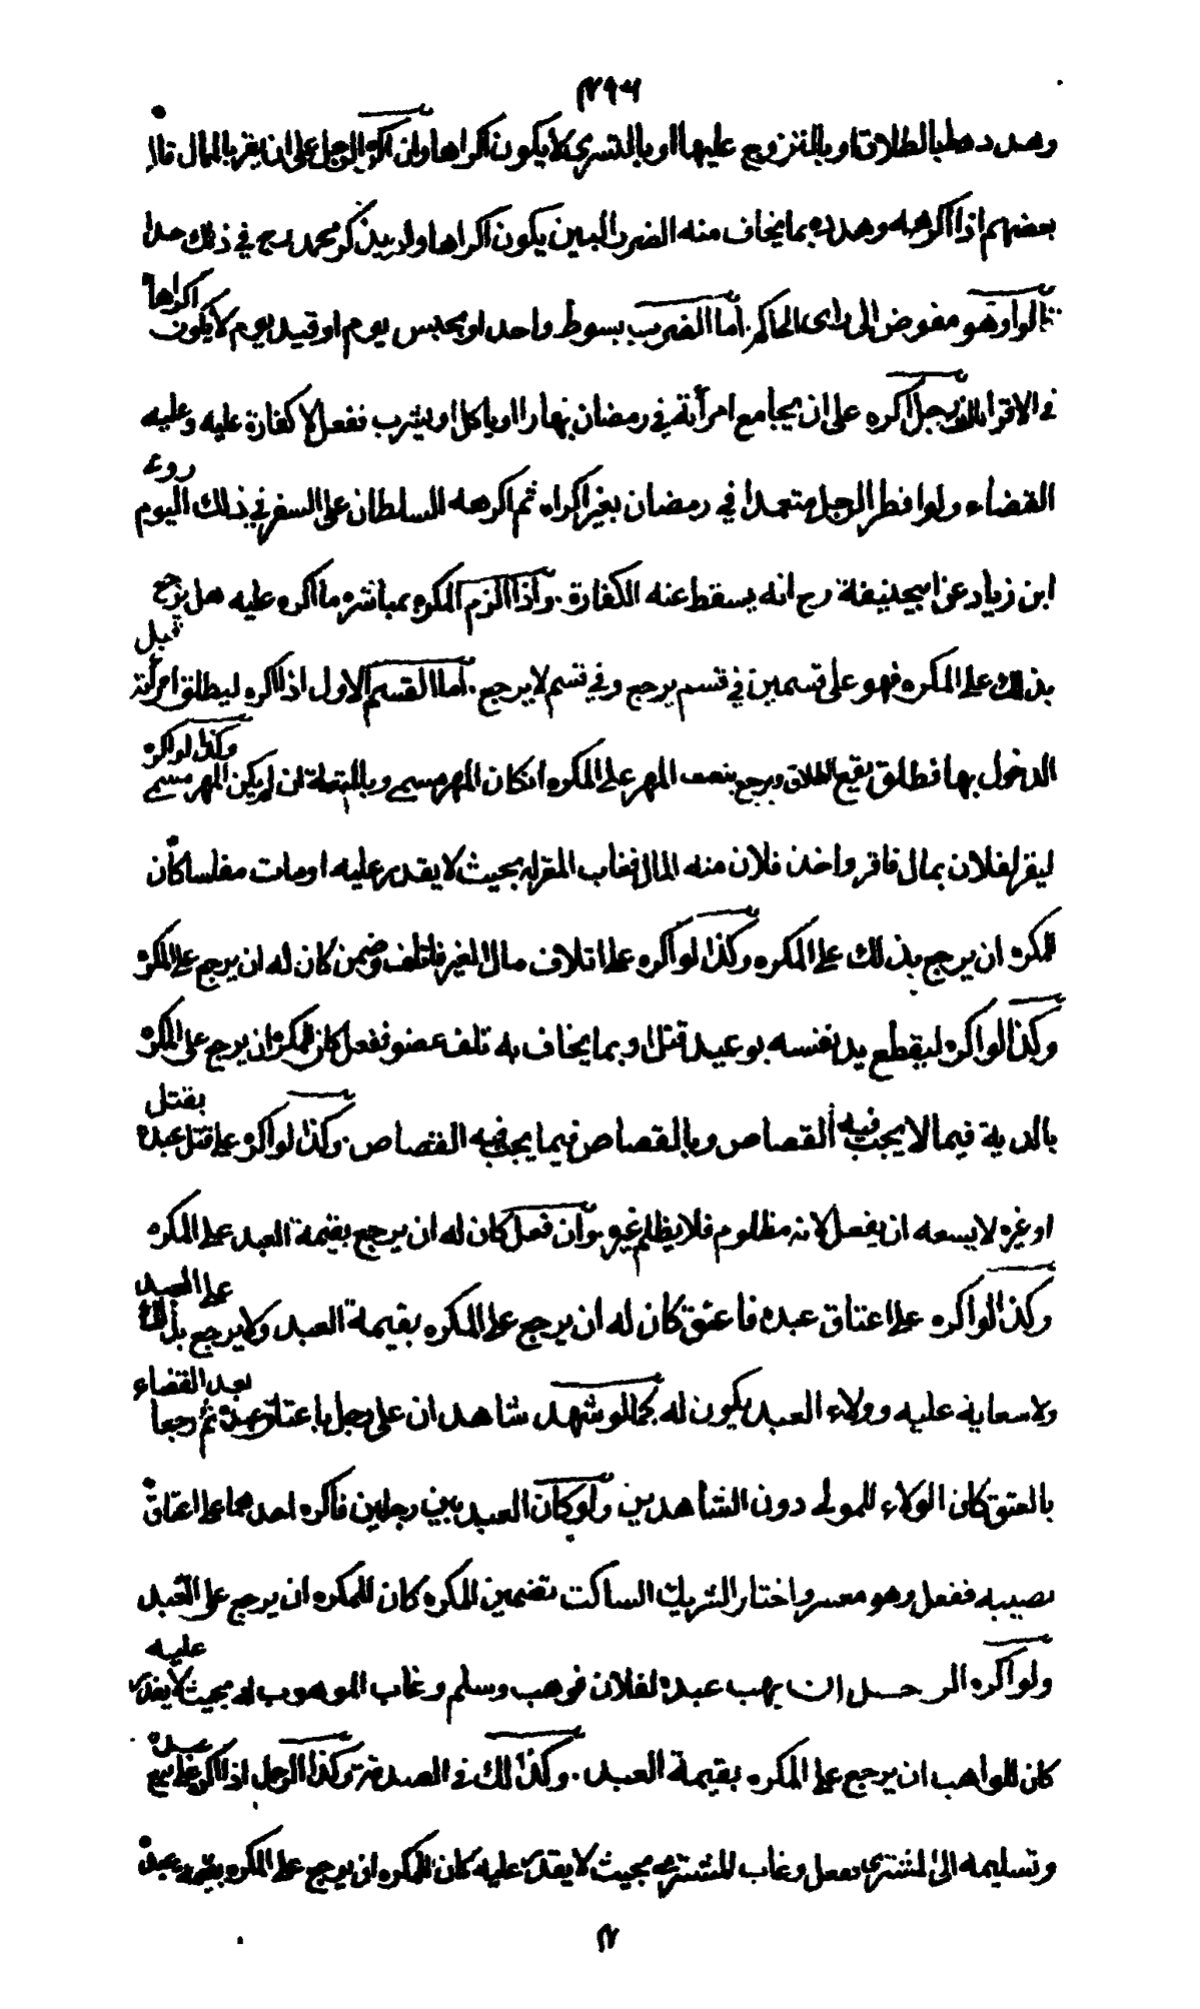 ٢٩٦
وهددها بالطلاق او بالتزوج عليها او بالتسري لا يكون اكراها ولو اكره الرجل على ان يقر بالمال قال
بعضهم اذا اكرهه وهدده بما يخاف منه الضرر البين يكون اكراها ولم يذكر محمد رح في ذلك حدا
قالوا وهو مفوض الى راى الحاكم. اما الضرب بسوط واحد او بحبس يوم او قيد يوم لا يكون اكراها
في الاقرار بالف. رجل اكره على ان يجامع امرأته في رمضان نهارا او ياكل او يشرب ففعل لا كفارة عليه وعليه
القضاء ولو افطر الرجل متعمدا في رمضان بغير اكراه ثم اكرهه السلطان على السفر في ذلك اليوم روى
ابن زياد عن ابيحنيفة رح انه يسقط عنه الكفارة. واذا الزم المكره بمباشره ما اكره عليه هل يرجع
بذلك على المكره فهو على قسمين في قسم يرجع وفي قسم لا يرجع. اما القسم الاول اذا اكره ليطلق امرأته قبل
الدخول بها فطلق يقع الطلاق ويرجع بنصف المهر على المكره ان كان المهر مسمى وبالمتعة ان لم يكن المهر مسمى وكذا لو اكره
ليقر لفلان بمال فاقر واخذ فلان منه المال فغاب المقر له بحيث لا يقدر عليه او مات مفلسا كان
للمكره ان يرجع بذلك على المكره وكذا لو اكره على اتلاف مال الغير فاتلف وضمن كان له ان يرجع على المكره
وكذا لو اكره ليقطع يد نفسه بوعيد قتل او بما يخاف به تلف عضو ففعل كان للمكره ان يرجع على المكره
بالدية فيما لا يجب فيه القصاص وبالقصاص فيما يجب فيه القصاص. وكذا لو اكره على قتل عبده بقتل
او غيره لا يسعه ان يفعل لانه مظلوم فلا يظلم غيره وان فعل كان له ان يرجع بقيمة العبد على المكره
وكذا لو اكره على اعتاق عبده فاعتق كان له ان يرجع على المكره بقيمة العبد ولا يرجع بذلك على العبد
ولا سعاية عليه وولاء العبد يكون له كما لو شهد شاهدان على رجل باعتاق عبده ثم رجعا بعد القضاء
بالعتق كان الولاء للمولى دون الشاهدين ولو كان العبد بين رجلين فاكره احدهما على اعتاق
نصيبه ففعل وهو معسر واختار الشريك الساكت تضمين المكره كان للمكره ان يرجع على العبد
ولو اكره الرجل ان يهب عبده لفلان فوهب وسلم وغاب الموهوب له بحيث لا يقدر عليه
كان للواهب ان يرجع على المكره بقيمة العبد. وكذلك في الصدقة وكذا الرجل اذا اكره على بيع عبده
وتسليمه الى المشتري ففعل وغاب المشتري بحيث لا يقدر عليه كان للمكره ان يرجع على المكره بقيمة عبده